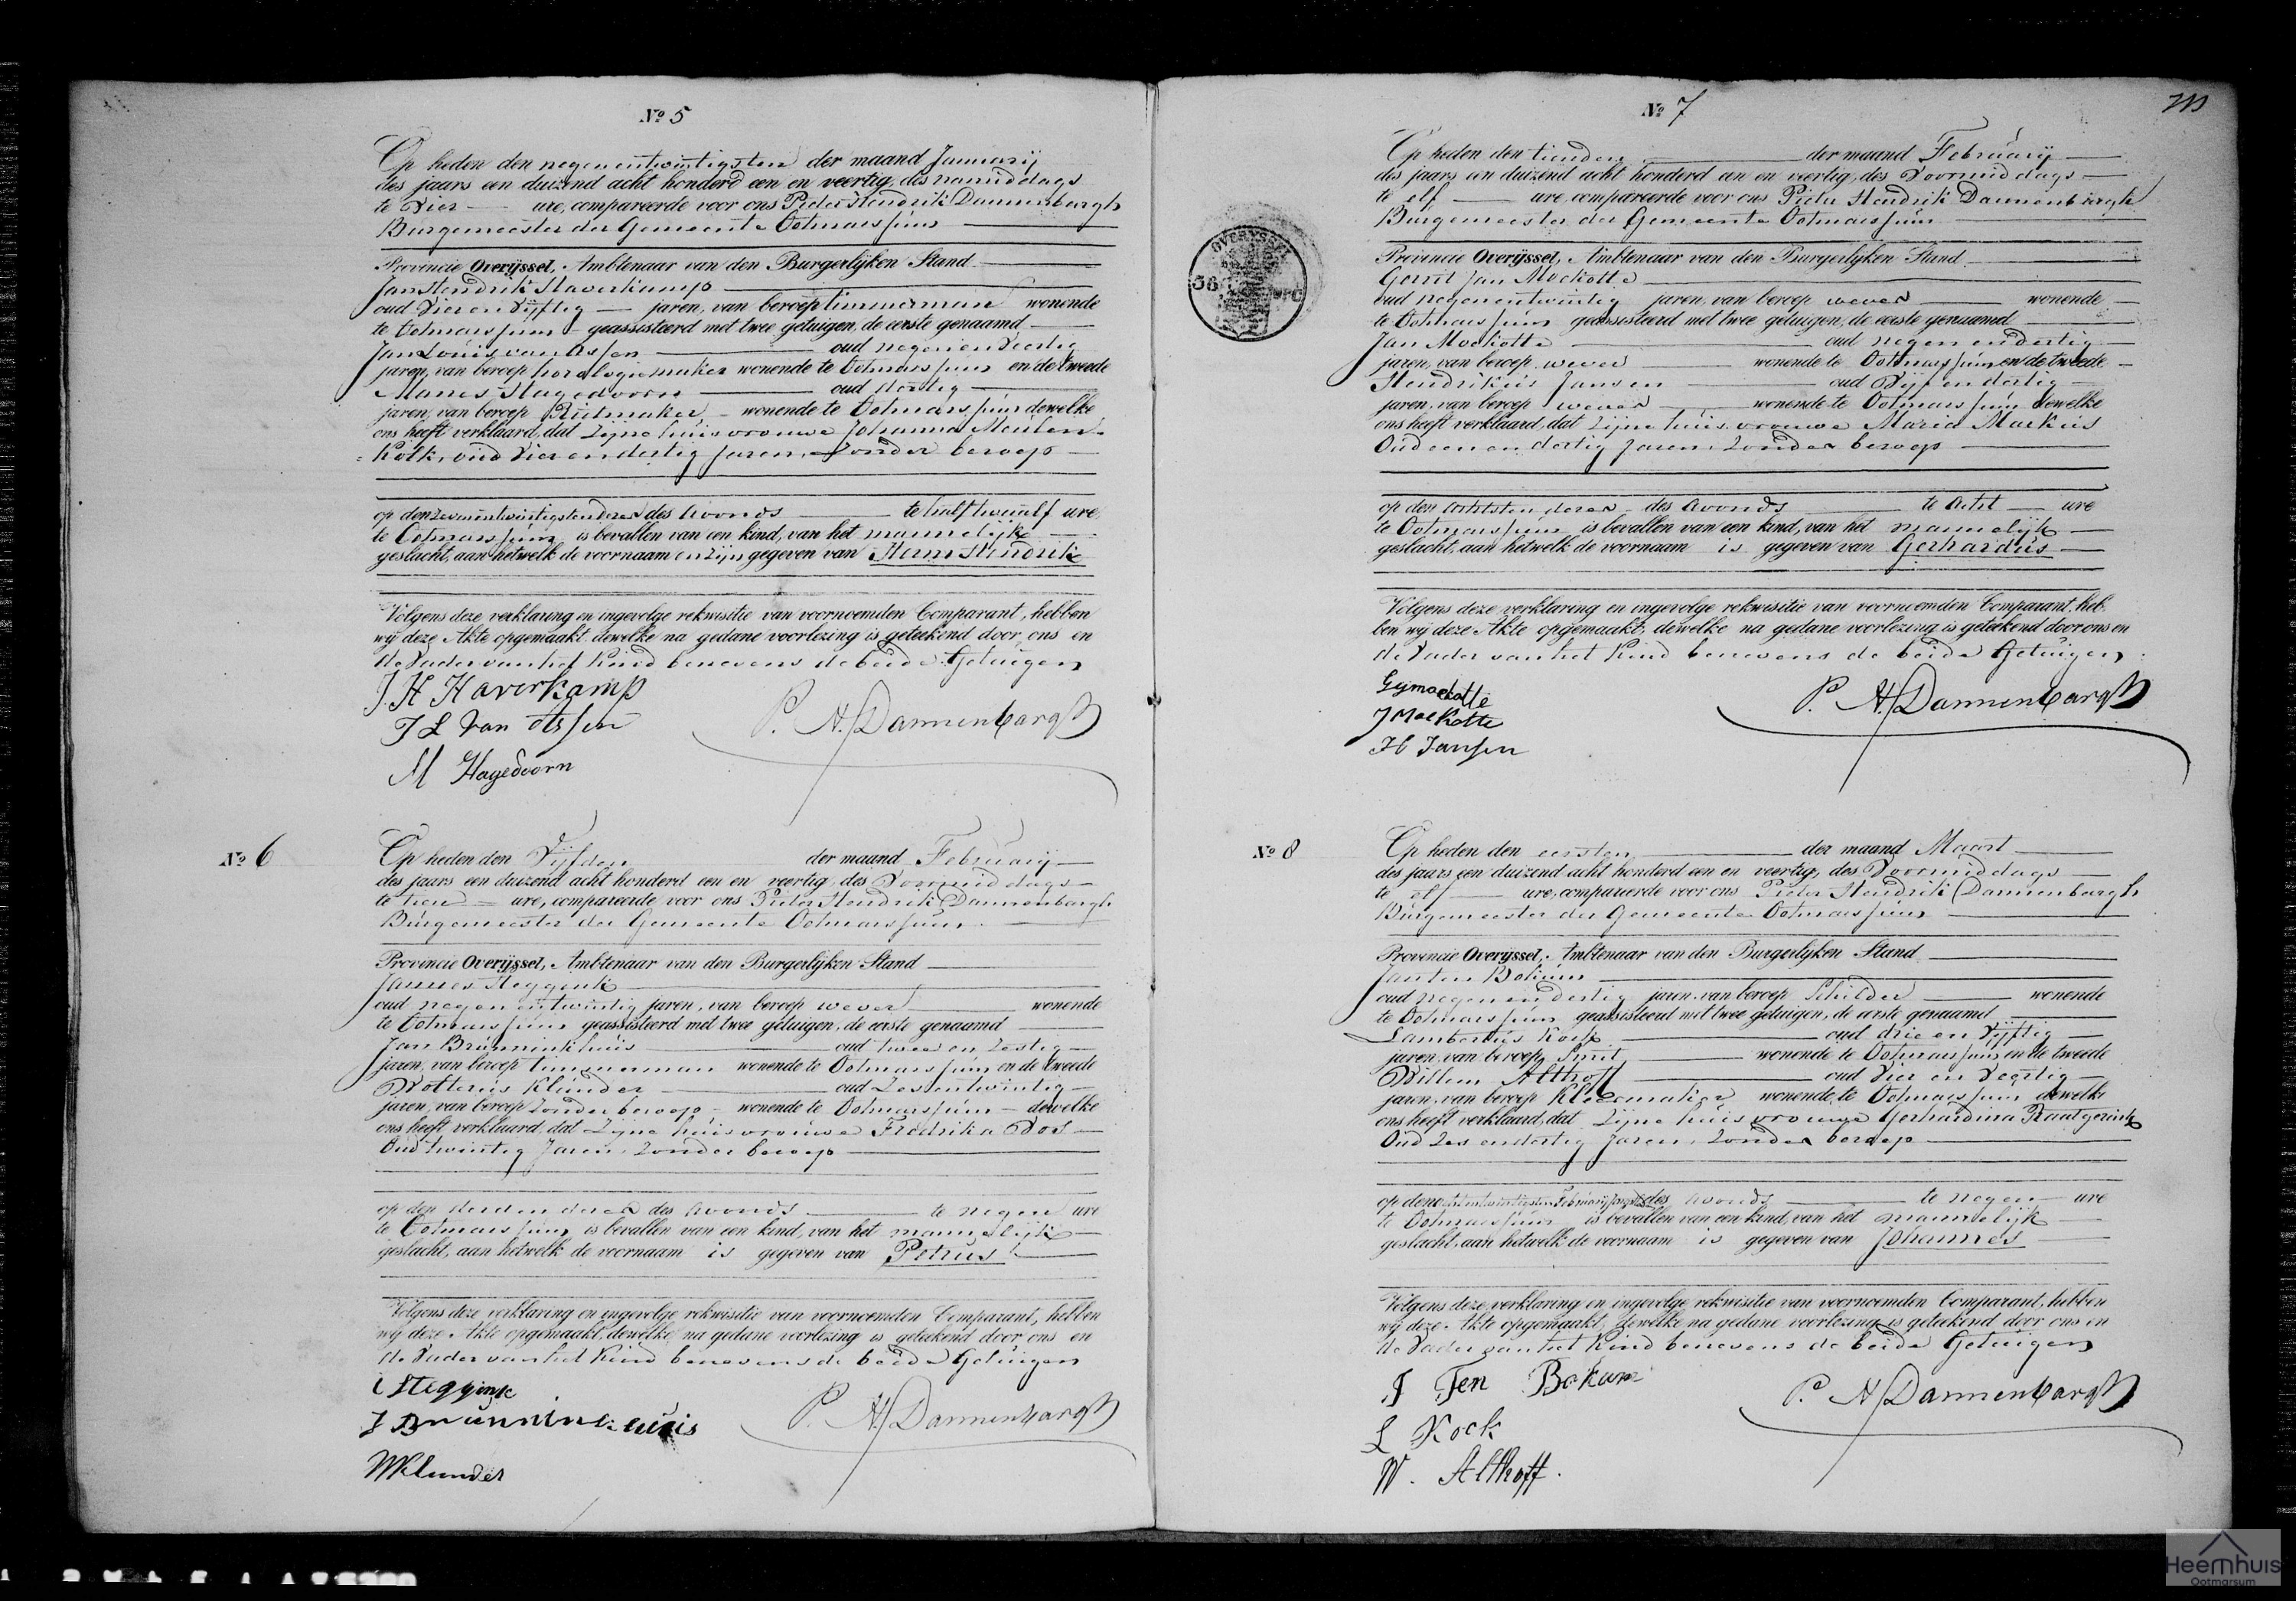 № 5
Op heden den negenentwintigsten der maand Januarij
des jaars een duizend acht honderd een en veertig, des namiddags
te Vier ure, compareerde voor ons Pieter Hendrik Dannenbargh
Burgemeester der Gemeente Ootmarssum
Provincie Overijssel, Ambtenaar van den Burgerlijken Stand
Jan Hendrik Haverkamp
oud Vier en Vijftig jaren, van beroep timmerman wonende
te Ootmarssum geassisteerd met twee getuigen, de eerste genaamd
Jan Louis van Assen oud negen en Veertig
jaren, van beroep horologiemaker wonende te Ootmarssum en de tweede
Manes Hagedoorn oud dertig
jaren, van beroep Rietmaker wonende te Ootmarssum dewelke
ons heeft verklaard, dat Zijne huisvrouwe Johanna Meulen-
=Kolk, oud Vier en dertig Jaren, Zonder beroep
op den Zevenentwintigsten dezer des Avonds te half twaalf ure
te Ootmarssum is bevallen van een kind, van het mannelijke
geslacht, aan hetwelk de voornaam en zijn gegeven van Harm Hendrik
Volgens deze verklaring en ingevolge rekwisitie van voornoemden Comparant, hebben
wij deze Akte opgemaakt, dewelke na gedane voorlezing is geteekend door ons en
de Vader van het Kind benevens de beide Getuigen
J. H Haverkamp
J L van Assen
P. H. Dannenbargh
M Hagedoorn
№ 6
Op heden den Vijfden der maand Februarij
des jaars een duizend acht honderd een en veertig, des Voormiddags
te tien ure, compareerde voor ons Pieter Hendrik Dannenbargh
Burgemeester der Gemeente Ootmarssum
Provincie Overijssel, Ambtenaar van den Burgerlijken Stand
Jannes Steggink
oud negen en twintig jaren, van beroep wever wonende
te Ootmarssum geassisteerd met twee getuigen, de eerste genaamd
Jan Brunninkhuis oud twee en Zestig
jaren, van beroep timmerman wonende te Ootmarssum en de tweede
Wolterus Klunder oud Zesentwintig
jaren, van beroep Zonder beroep wonende te Ootmarssum dewelke
ons heeft verklaard, dat Zijne huisvrouwe Fredrika Vos
Oud twintig Jaren, Zonder beroep
op den derden dezer des Avonds te negen ure
te Ootmarssum is bevallen van een kind, van het mannelijk
geslacht, aan hetwelk de voornaam is gegeven van Petrus
Volgens deze verklaring en ingevolge rekwisitie van voornoemden Comparant, hebben
wij deze Akte opgemaakt, dewelke na gedane voorlezing is geteekend door ons en
de Vader van het Kind benevens de beide Getuigen
Steggink
J Brunninkhuis
P. H. Dannenbargh
WKlunder
№ 7
Op heden den tienden der maand Februarij
des jaars een duizend acht honderd een en veertig, des Voormiddags
te elf ure, compareerde voor ons Pieter Hendrik Dannenbargh
Burgemeester der Gemeente Ootmarssum
OVERYSSEL
Provincie Overijssel, Ambtenaar van den Burgerlijken Stand
Gerrit Jan Moekotte
oud negenentwintig jaren, van beroep wever wonende
te Ootmarssum geassisteerd met twee getuigen, de eerste genaamd
Jan Moekotte oud negen en dertig
jaren, van beroep wever wonende te Ootmarssum en de tweede
Hendrikus Jansen oud Vijf en dertig
jaren, van beroep wever wonende te Ootmarssum dewelke
ons heeft verklaard, dat Zijne huisvrouwe Maria Markus
Oud een en dertig Jaren, Zonder beroep
op den Achtsten dezer des Avonds te Acht ure
te Ootmarssum is bevallen van een kind, van het mannelijk
geslacht, aan hetwelk de voornaam is gegeven van Gerhardus
Volgens deze verklaring en ingevolge rekwisitie van voornoemden Comparant, heb-
ben wij deze Akte opgemaakt, dewelke na gedane voorlezing is geteekend door ons en
de Vader van het Kind benevens de beide Getuigen
Gjmoekotte
P. H. Dannenbargh
J Moekotte
H Jansen
№ 8
Op heden den eersten der maand Maart
des jaars een duizend acht honderd een en veertig, des Voormiddags
te elf ure, compareerde voor ons Pieter Hendrik Dannenbargh
Burgemeester der Gemeente Ootmarssum
Provincie Overijssel, Ambtenaar van den Burgerlijken Stand
Jan ten Bokum
oud negen en dertig jaren, van beroep Schilder wonende
te Ootmarssum geassisteerd met twee getuigen, de eerste genaamd
Lambertus Kock oud drie en Vijftig
jaren, van beroep Smit wonende te Ootmarssum en de tweede
Willem Althoff oud Vier en Veertig
jaren, van beroep Kleermaker wonende te Ootmarssum dewelke
ons heeft verklaard, dat Zijne huisvrouwe Gerhardina Raatgerink
Oud Zes en dertig Jaren, Zonder beroep
op den Februarij des Avonds te negen ure
te Ootmarssum is bevallen van een kind, van het mannelijk
geslacht, aan hetwelk de voornaam is gegeven van Johannes
Volgens deze verklaring en ingevolge rekwisitie van voornoemden Comparant, hebben
wij deze Akte opgemaakt, dewelke na gedane voorlezing is geteekend door ons en
de Vader van het Kind benevens de beide Getuigen
J Ten Bokum
P. H. Dannenbargh
L Kock
W. Althoff.
Heemhuis
Ootmarsum